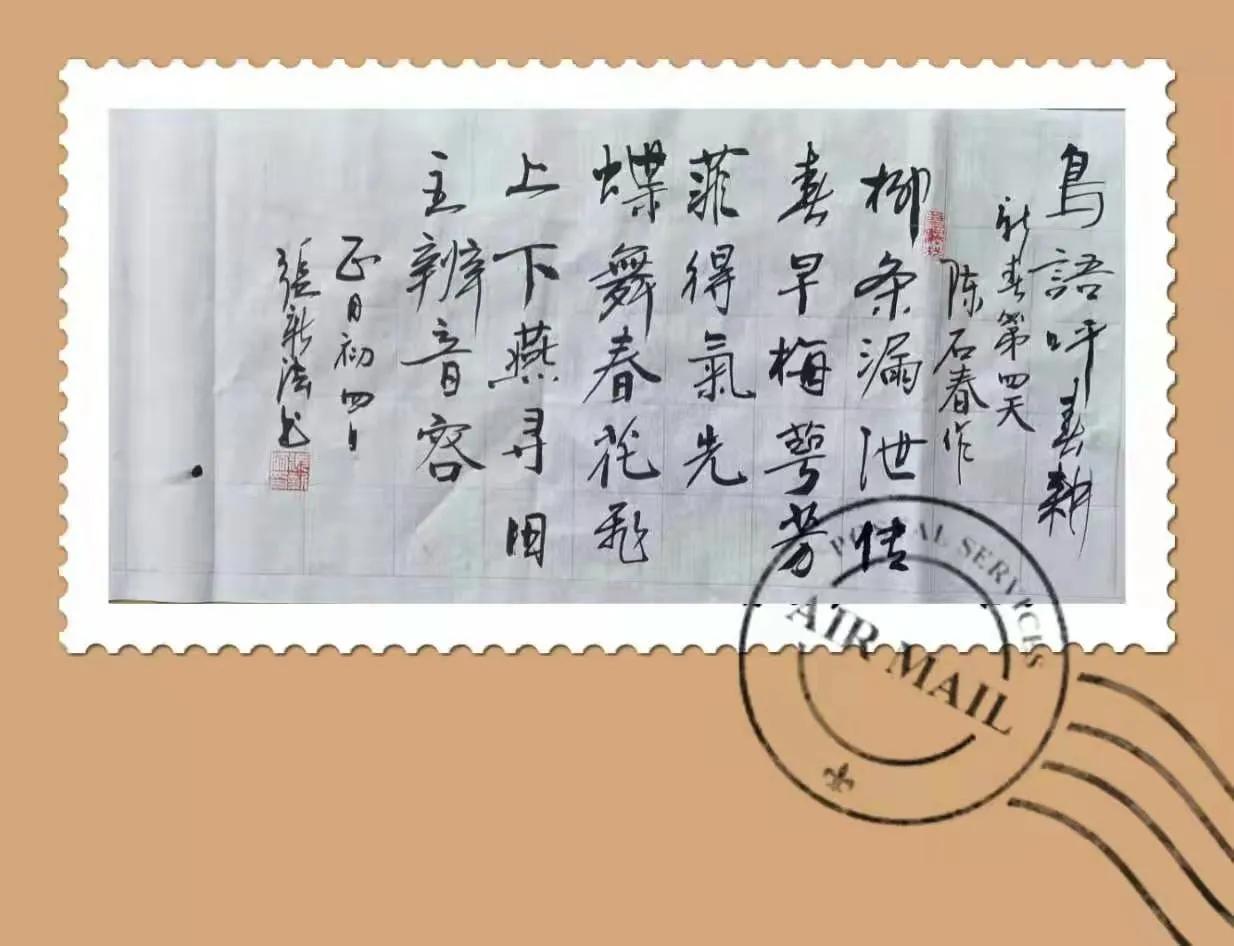 鳥語呼春耕
新春第四天
陈石春作
柳条漏泄传
春早梅萼芳
菲得氣先
蝶舞春花飛
上下燕寻旧
主辨音容
正月初四日
張新法书
POSTAL SERVICES
AIR MAIL